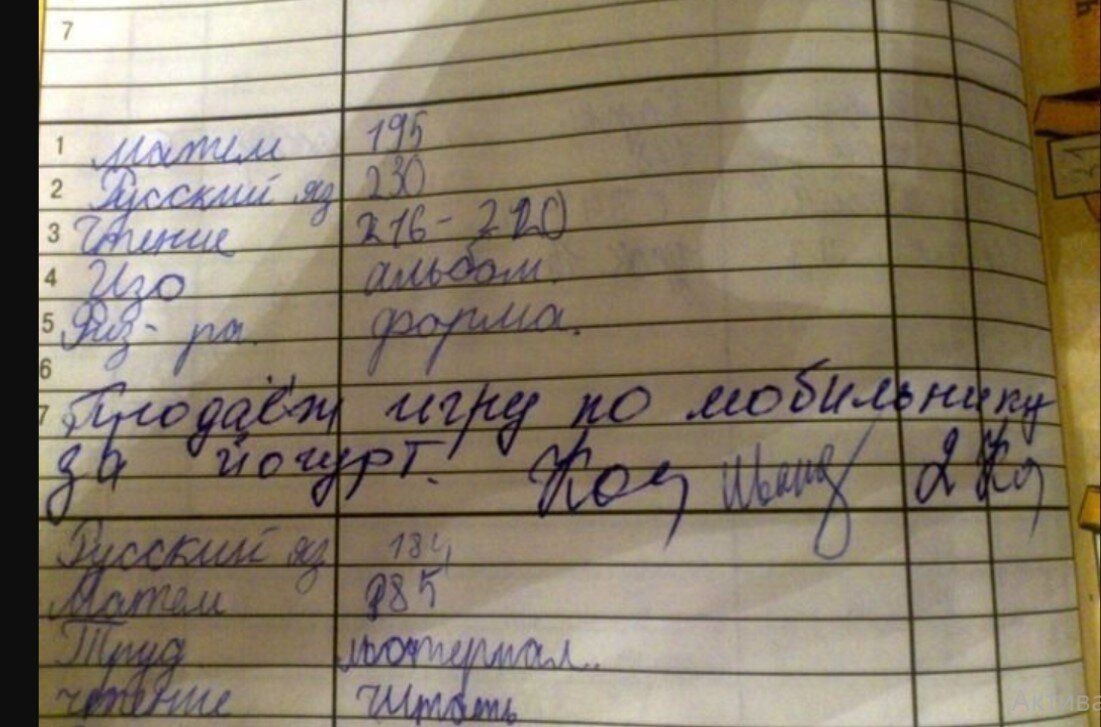 7
1 матем 195
2 Русский яз 230
3 Чтение 216-220
4 Изо альбом.
5 Физ-ра. форма.
6
7 Продаёт игру по мобильнику
за йогурт. 2
Русский яз 184
Матем 185
Труд
чтение Читать
Актива